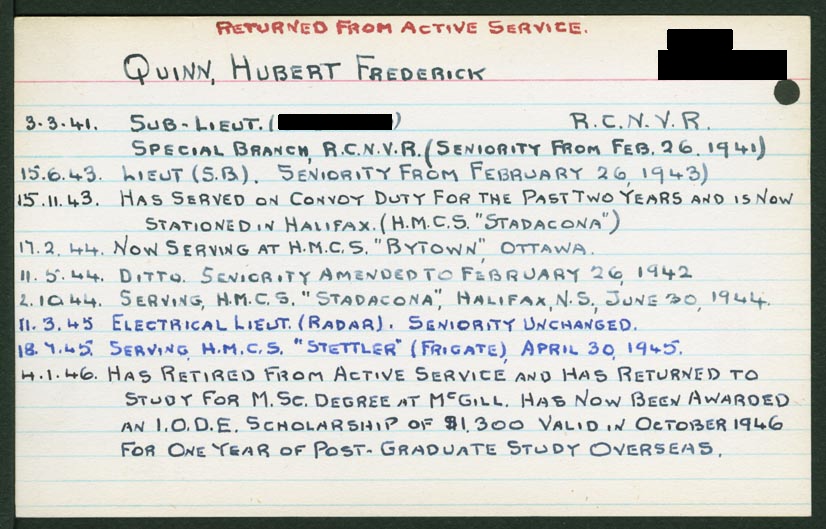 RETURNED FROM ACTIVE SERVICE.
QUINN, HUBERT FREDERICK
3.3.41. SUB-LIEUT. ( ) R.C.N.V.R.
SPECIAL BRANCH, R.C.N.V.R. (SENIORITY FROM FEB. 26, 1941)
15.6.43. LIEUT (S.B). SENIORITY FROM FEBRUARY 26, 1943)
15.11.43. HAS SERVED ON CONVOY DUTY FOR THE PAST TWO YEARS AND IS NOW
STATIONED IN HALIFAX. (H.M.C.S. "STADACONA")
17.2.44. NOW SERVING AT H.M.C.S. "BYTOWN", OTTAWA.
11.5.44. DITTO. SENIORITY AMENDED TO FEBRUARY 26, 1942
2.10.44. SERVING, H.M.C.S. "STADACONA", HALIFAX, N.S., JUNE 30, 1944.
11.3.45 ELECTRICAL LIEUT. (RADAR). SENIORITY UNCHANGED.
18.7.45. SERVING, H.M.C.S. "STETTLER" (FRIGATE), APRIL 30, 1945.
4.1.46. HAS RETIRED FROM ACTIVE SERVICE AND HAS RETURNED TO
STUDY FOR M.SC. DEGREE AT MCGILL. HAS NOW BEEN AWARDED
AN I.O.D.E. SCHOLARSHIP OF $1,300 VALID IN OCTOBER 1946
FOR ONE YEAR OF POST-GRADUATE STUDY OVERSEAS.